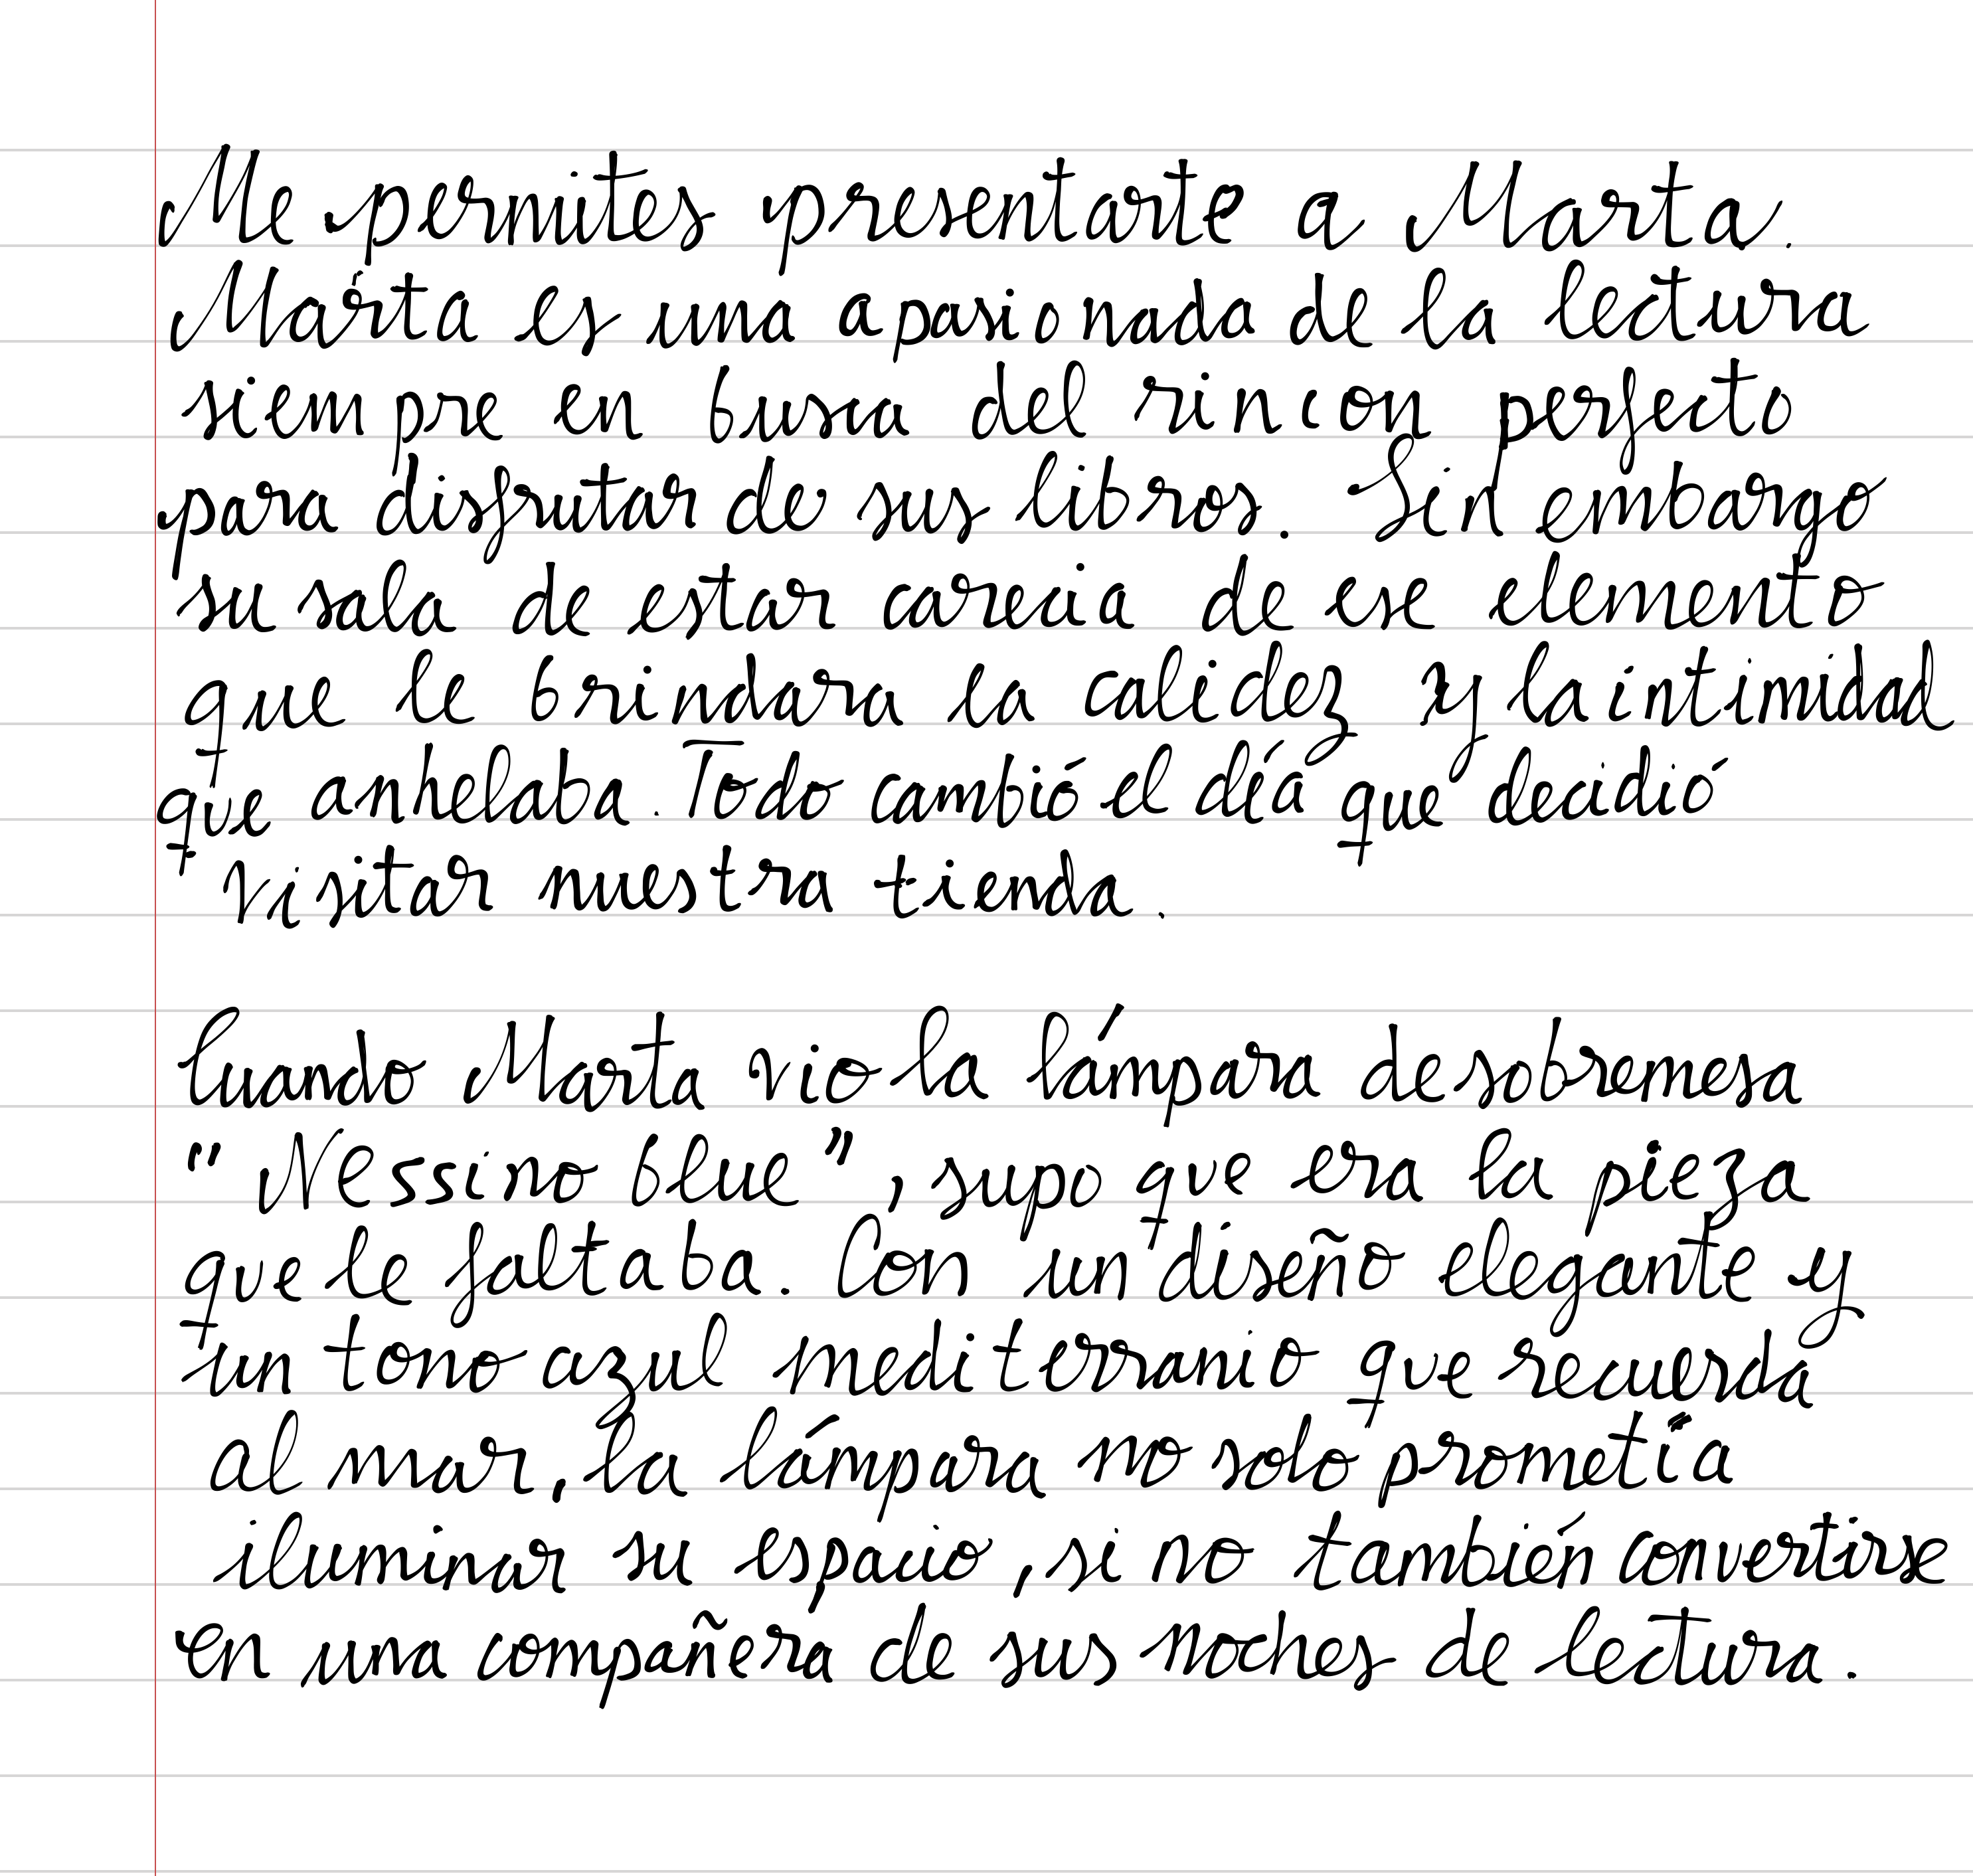 Me permites presentarte a Marta.
Marta es una apasionada de la lectura
siempre en busca del rincon perfecto
para disfrutar de sus libros. Sin embargo
su sala de estar carecia de ese elemento
que le brindara la calidez y la intimidad
que anhelaba. Todo cambió el día que decidió
visitar nuestra tienda.
Cuando Marta vio la lámpara de sobremesa
"Nessino blue", supo que era la pieza
que le faltaba. Con un diseño elegante y
un tono azul mediterranio que recuerda
al mar, la lámpara no solo prometía
iluminar su espacio, si no también convertirse
en una compañera de sus noches de lectura.